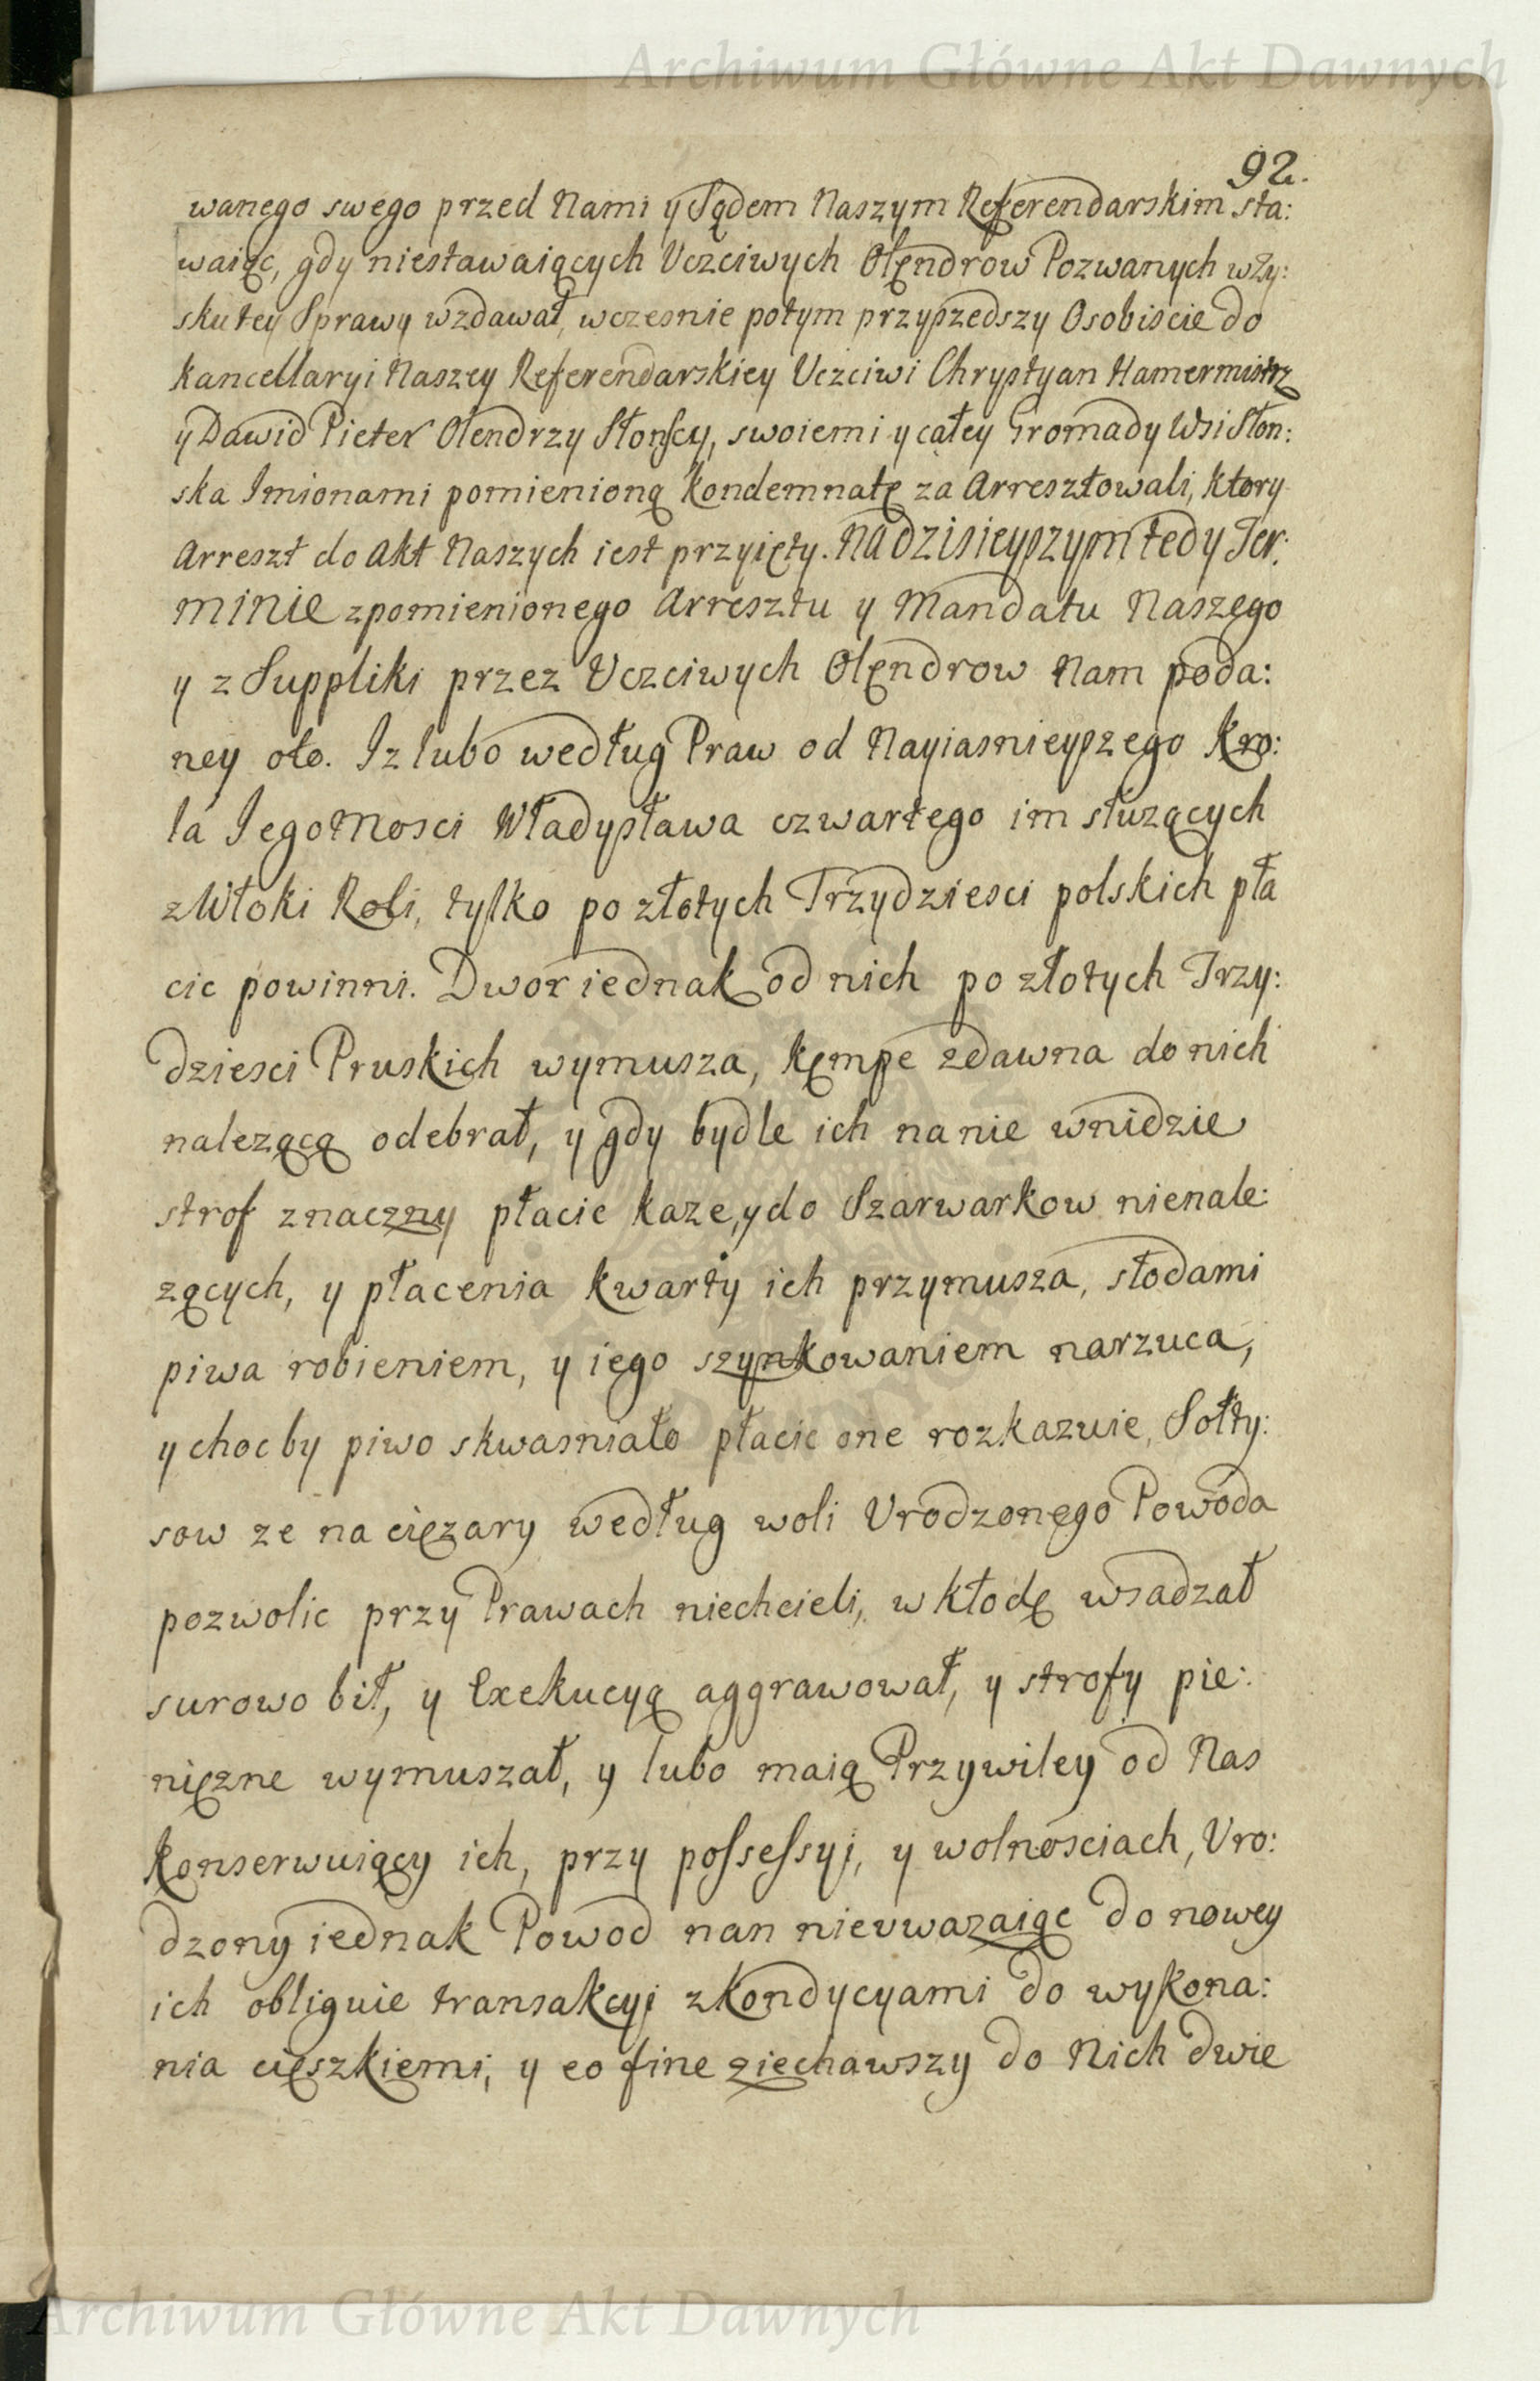 Archiwum Główne Akt Dawnych
92.
wanego swego przed Nami y Sądem Naszym Referendarskim sta:
waiąc, gdy niestawaiących Uczciwych Olęndrow Pozwanych wzy:
sku tey Sprawy wzdawał, wczesnie potym przyszedszy Osobiscie do
Kancellaryi Naszey Referendarskiey Uczciwi Chrystyan Hamermistrz
y Dawid Pieter Olendrzy Słonscy, swoiemi y całey Gromady Wsi Słon:
ska Imionami pomienioną Kondemnatę za Arresztowali, ktory
Arreszt do Akt Naszych iest przyięty. Na dzisieyszym tedy Ter:
minie z pomienionego Arresztu y Mandatu Naszego
y z Suppliki przez Uczciwych Olęndrow Nam poda:
ney oto. Iz lubo według Praw od Nayiasnieyszego Kro:
la Iego Mosci Władysława czwartego im słuzących
z Włoki Roli, tylko po złotych Trzydziesci polskich pła
cic powinni. Dwor iednak od nich po złotych Trzy:
dziesci Pruskich wymusza, Kępmpe zdawna do nich
nalezącą odebrał, y gdy bydle ich na nie wnidzie
strof znaczny płacic kaze, y do Szarwarkow nienale:
zących, y płacenia kwarty ich przymusza, słodami
piwa robieniem, y iego szynkowaniem narzuca,
y choc by piwo skwasniało płacic one rozkazuie, Sołty:
sow ze na ciężary według woli Urodzonego Powoda
pozwolic przy Prawach niechcieli, w kłodę wsadzał
surowo bił, y Exekucyą aggrawował, y strofy pie:
nięzne wymuszał, y lubo maią Przywiley od Nas
konserwuiący ich, przy possessyi, y wolnosciach, Uro:
dzony iednak Powod nan nieuwazaiąc do nowey
ich obliguie transakcyi z kondycyami do wykona:
nia cięszkiemi, y eo fine ziechawszy do Nich dwie
Archiwum Główne Akt Dawnych